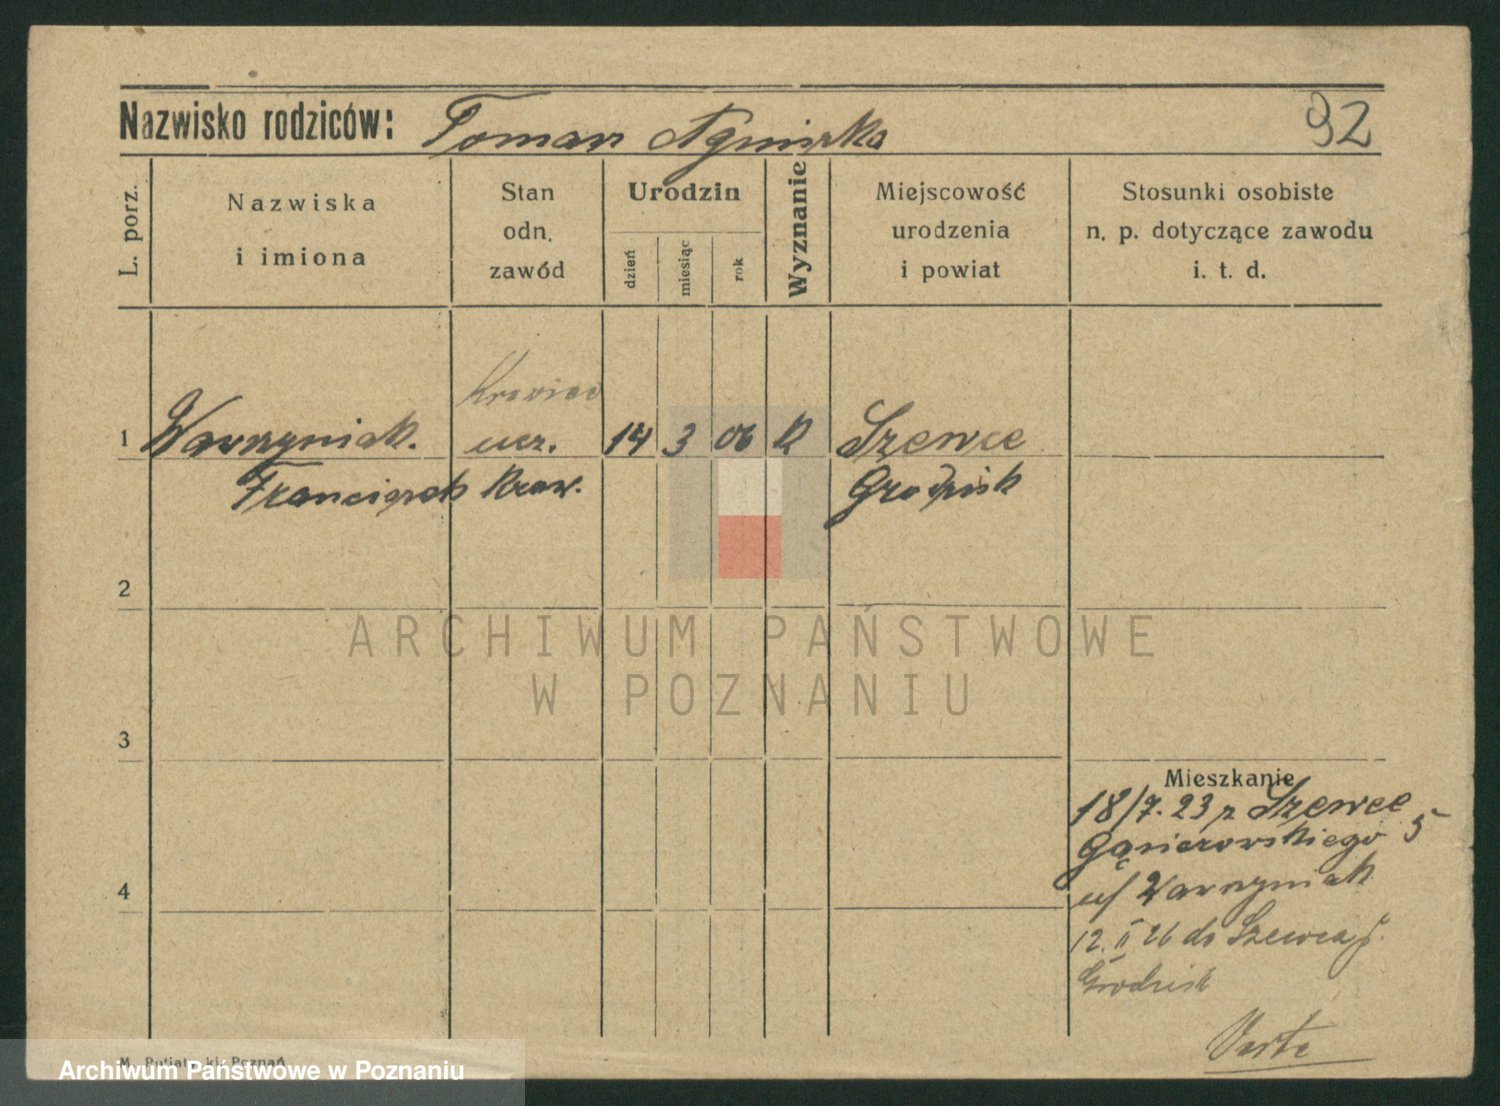 Nazwisko rodziców: Tomasz Agnieszka
92
L. porz.
Nazwiska
i imiona
Stan
odn.
zawód
Urodzin
dzień
miesiąc
rok
Wyznanie
Miejscowość
urodzenia
i powiat
Stosunki osobiste
n. p. dotyczące zawodu
i. t. d.
Krawiec
1 Wawrzyniak. ucz. 14 3 06 K Szewce
Franciszek Kraw. Grodzisk
2
ARCHIWUM PAŃSTWOWE
W POZNANIU
3
Mieszkanie
18/7. 23 z Szewce
Gąsiorowskiego 5
u/ Wawrzyniak
4
12. II 26 do Szewca p.
Grodzisk
Verte
M. Putiatycki, Poznań
Archiwum Państwowe w Poznaniu